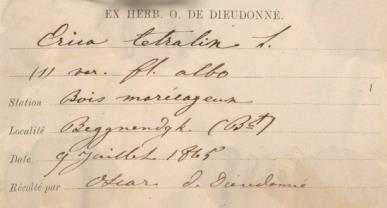 EX HERB. O. DE DIEUDONNÉ.
Erica tetralix L.
(1) var. fl. albo
Station Bois marécageux
Localité Beggynendyk. (Bt)
Date 9 Juillet 1865
Récolté par Oscar de Dieudonné